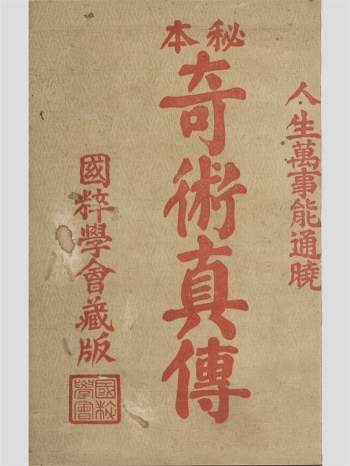 人生萬事能通曉
秘本
奇術真傳
國粹學會藏版
國粹學會